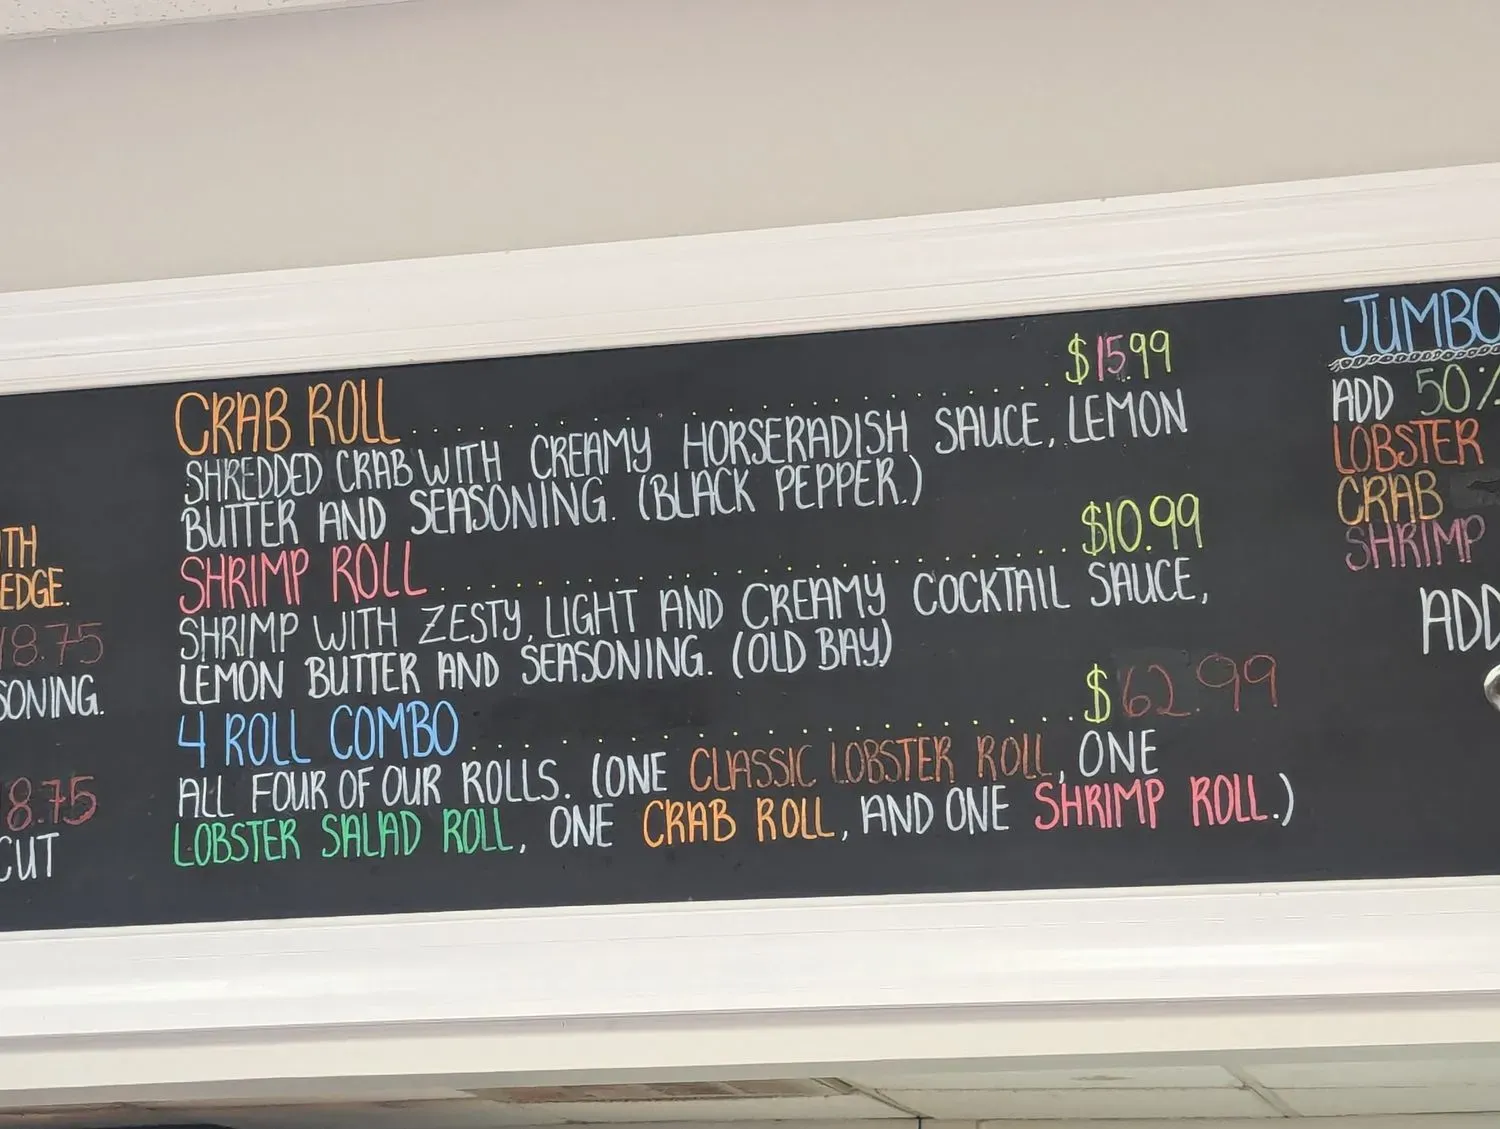 TH
EDGE.
18.75
SONING.
18.75
CUT
CRAB ROLL . . . . . . . . . . . . . . . . . . . . $15.99
SHREDDED CRAB WITH CREAMY HORSERADISH SAUCE, LEMON
BUTTER AND SEASONING. (BLACK PEPPER.)
SHRIMP ROLL . . . . . . . . . . . . . . . . . . . . $10.99
SHRIMP WITH ZESTY, LIGHT AND CREAMY COCKTAIL SAUCE,
LEMON BUTTER AND SEASONING. (OLD BAY)
4 ROLL COMBO . . . . . . . . . . . . . . . . . . . . $62.99
ALL FOUR OF OUR ROLLS. (ONE CLASSIC LOBSTER ROLL, ONE
LOBSTER SALAD ROLL, ONE CRAB ROLL, AND ONE SHRIMP ROLL.)
JUMBO
ADD 50%
LOBSTER
CRAB
SHRIMP
ADD